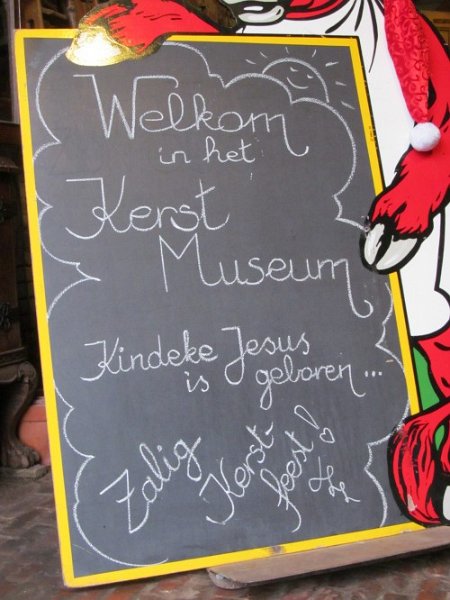 Welkom
in het
Kerst
Museum
Kindeke Jesus
is geboren...
Zalig Kerst-
feest!